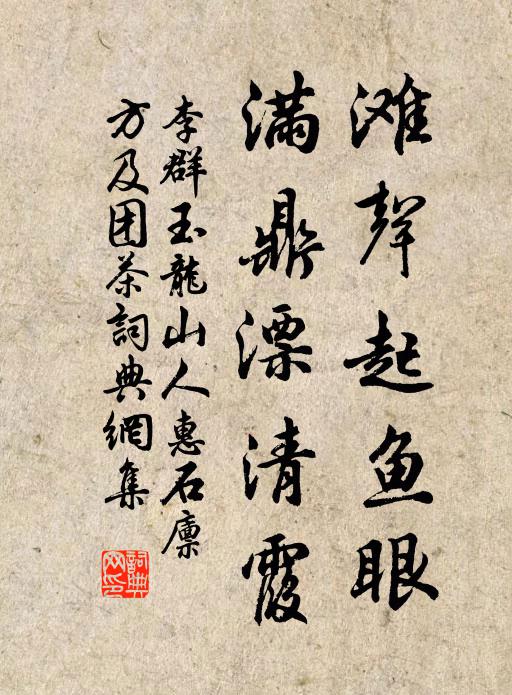 滩聲起鱼眼
满鼎漂清霞
李群玉龍山人惠石廪
方及团茶詞典網集
詞典
网印